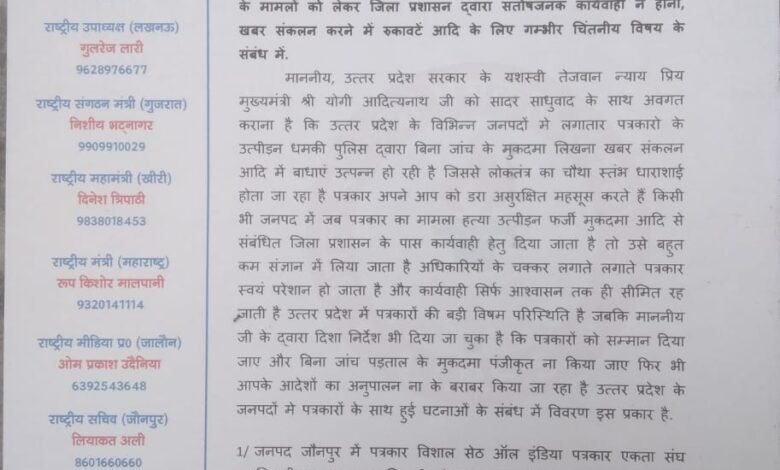 राष्ट्रीय उपाध्यक्ष (लखनऊ)
गुलरेज लारी
9628976677
राष्ट्रीय संगठन मंत्री (गुजरात)
निशीथ भटनागर
9909910029
राष्ट्रीय महामंत्री (खीरी)
दिनेश त्रिपाठी
9838018453
राष्ट्रीय मंत्री (महाराष्ट्र)
रूप किशोर मालपानी
9320141114
राष्ट्रीय मीडिया प्र0 (जालौन)
ओम प्रकाश उदैनिया
6392543648
राष्ट्रीय सचिव (जौनपुर)
लियाकत अली
8601660660
के मामलों को लेकर जिला प्रशासन द्वारा संतोषजनक कार्यवाही न होना,
खबर संकलन करने में रुकावटें आदि के लिए गम्भीर चिंतनीय विषय के
संबंध में.
माननीय, उत्तर प्रदेश सरकार के यशस्वी तेजवान न्याय प्रिय
मुख्यमंत्री श्री योगी आदित्यनाथ जी को सादर साधुवाद के साथ अवगत
कराना है कि उत्तर प्रदेश के विभिन्न जनपदों मे लगातार पत्रकारो के
उत्पीड़न धमकी पुलिस द्वारा बिना जांच के मुकदमा लिखना खबर संकलन
आदि में बाधाएं उत्पन्न हो रही है जिससे लोकतंत्र का चौथा स्तंभ धाराशाई
होता जा रहा है पत्रकार अपने आप को डरा असुरक्षित महसूस करते हैं किसी
भी जनपद में जब पत्रकार का मामला हत्या उत्पीड़न फर्जी मुकदमा आदि से
संबंधित जिला प्रशासन के पास कार्यवाही हेतु दिया जाता है तो उसे बहुत
कम संज्ञान में लिया जाता है अधिकारियों के चक्कर लगाते लगाते पत्रकार
स्वयं परेशान हो जाता है और कार्यवाही सिर्फ आश्वासन तक ही सीमित रह
जाती है उत्तर प्रदेश में पत्रकारों की बड़ी विषम परिस्थिति है जबकि माननीय
जी के द्वारा दिशा निर्देश भी दिया जा चुका है कि पत्रकारों को सम्मान दिया
जाए और बिना जांच पड़ताल के मुकदमा पंजीकृत ना किया जाए फिर भी
आपके आदेशों का अनुपालन ना के बराबर किया जा रहा है उत्तर प्रदेश के
जनपदों मे पत्रकारों के साथ हुई घटनाओं के संबंध में विवरण इस प्रकार है.
1/ जनपद जौनपुर में पत्रकार विशाल सेठ ऑल इंडिया पत्रकार एकता संघ